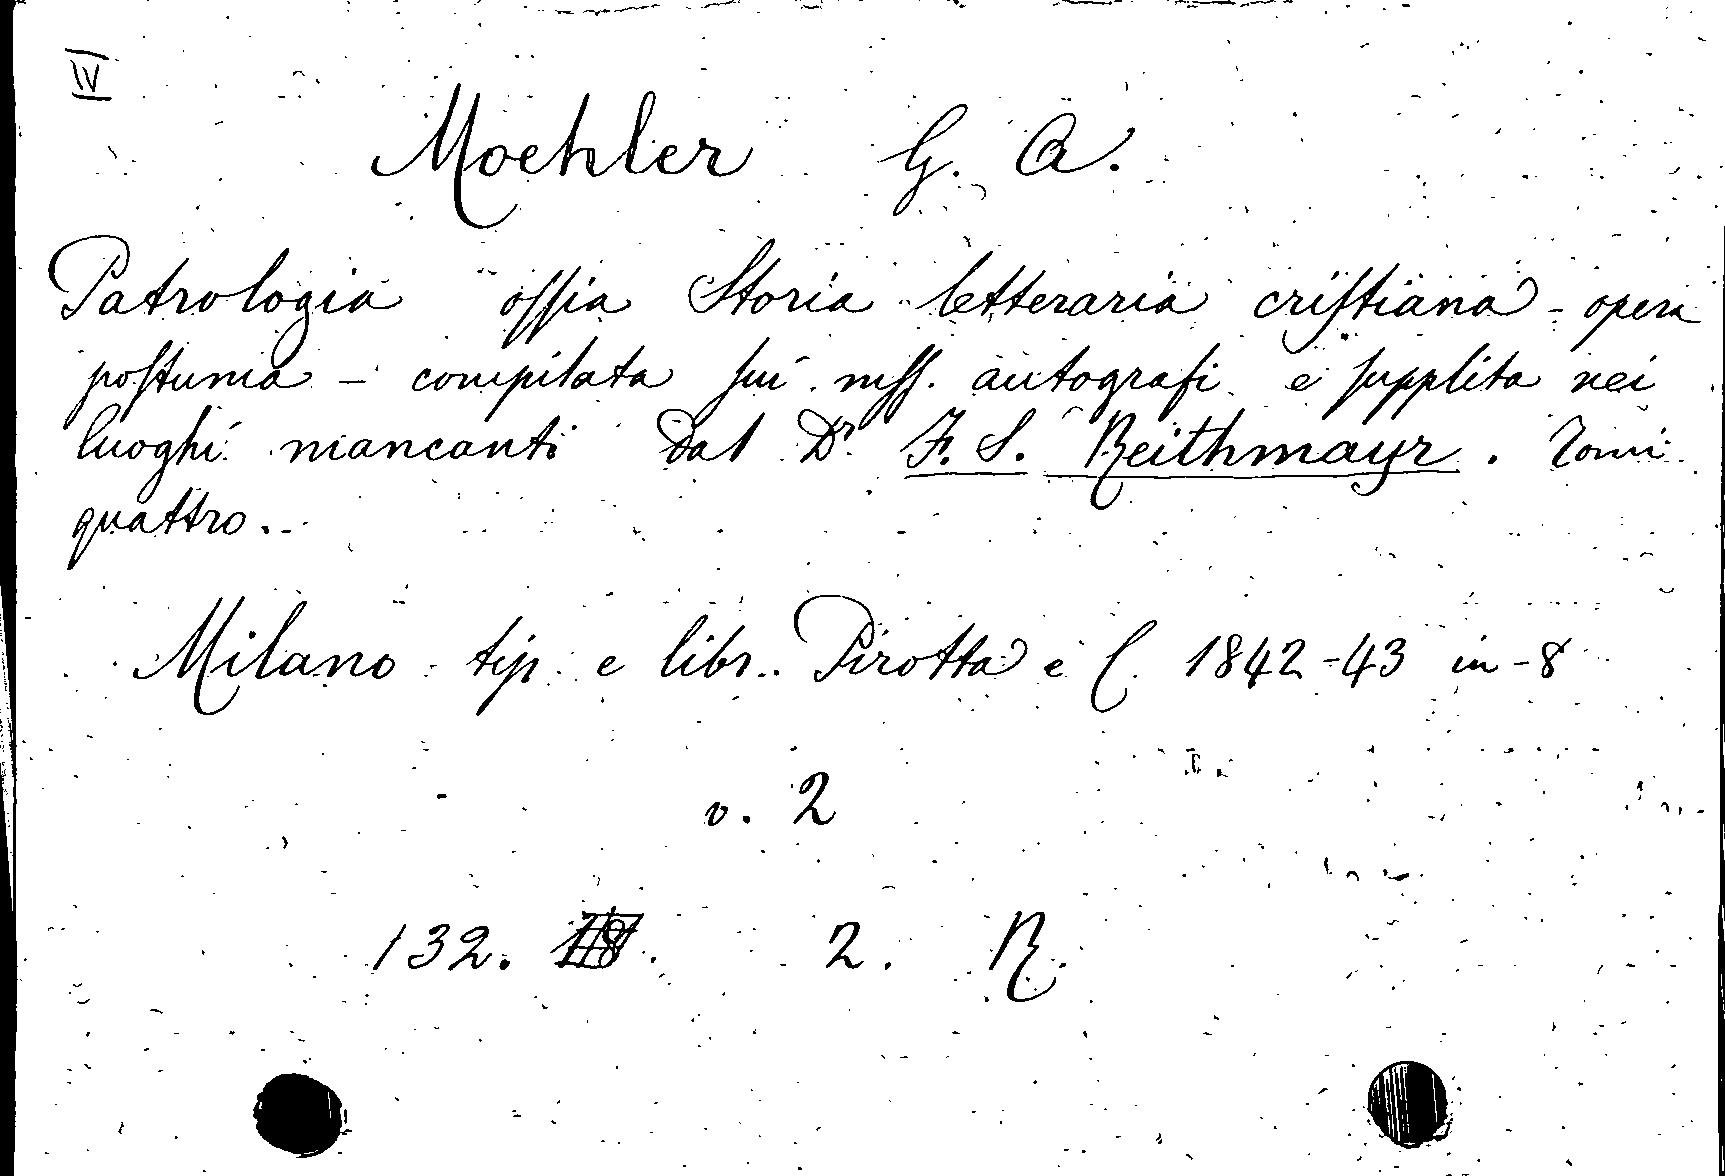 IV
Moehler G. A.
Patrologia ossia Storia letteraria cristiana - opera
postuma - compilata sui mss. autografi e supplita nei
luoghi mancanti dal Dr F. S. Reithmayr. Tomi
quattro.
Milano tip. e libr. Pirotta e C. 1842-43 in-8
v. 2
132. 2. R.